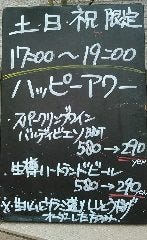 土日祝限定
17:00～19:00
ハッピーアワー
スパークリングワイン
バルディビエソBRT
580→290
yen
生樽ハートランドビール
580→290
yen
オーダーした方のみ